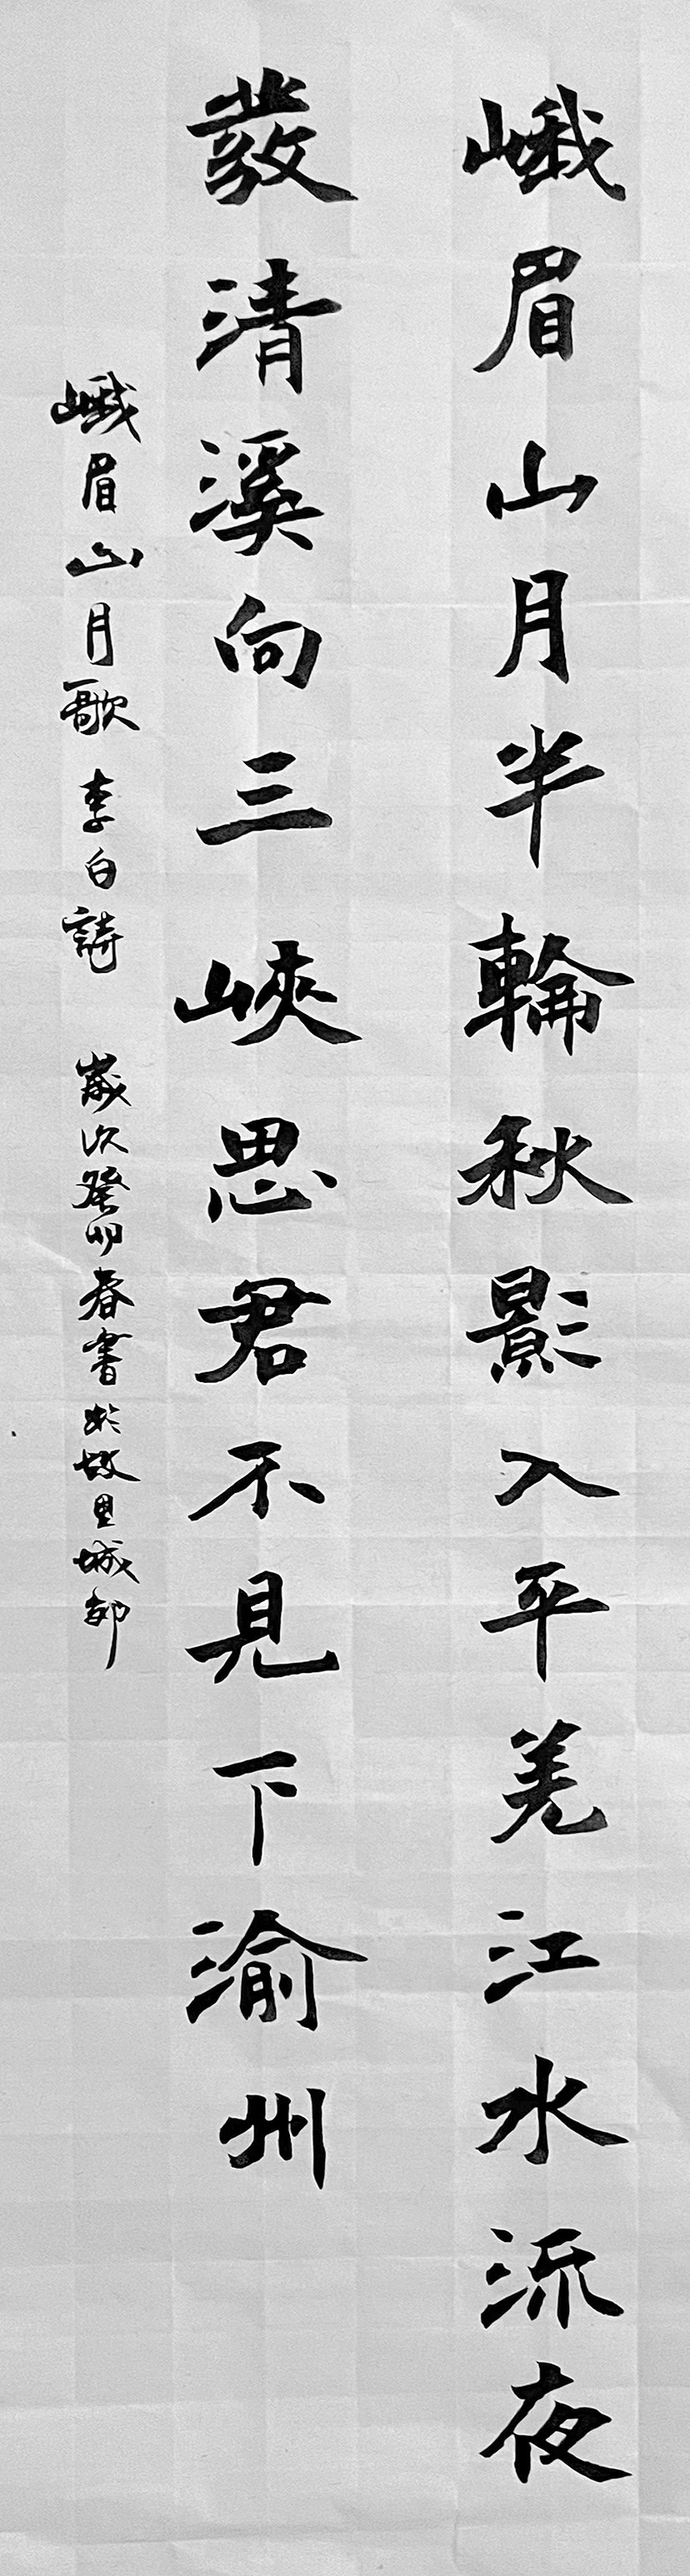 峨眉山月半輪秋影入平羌江水流夜
發清溪向三峽思君不見下渝州
峨眉山月歌 李白詩 歲次癸卯春書於故里城都